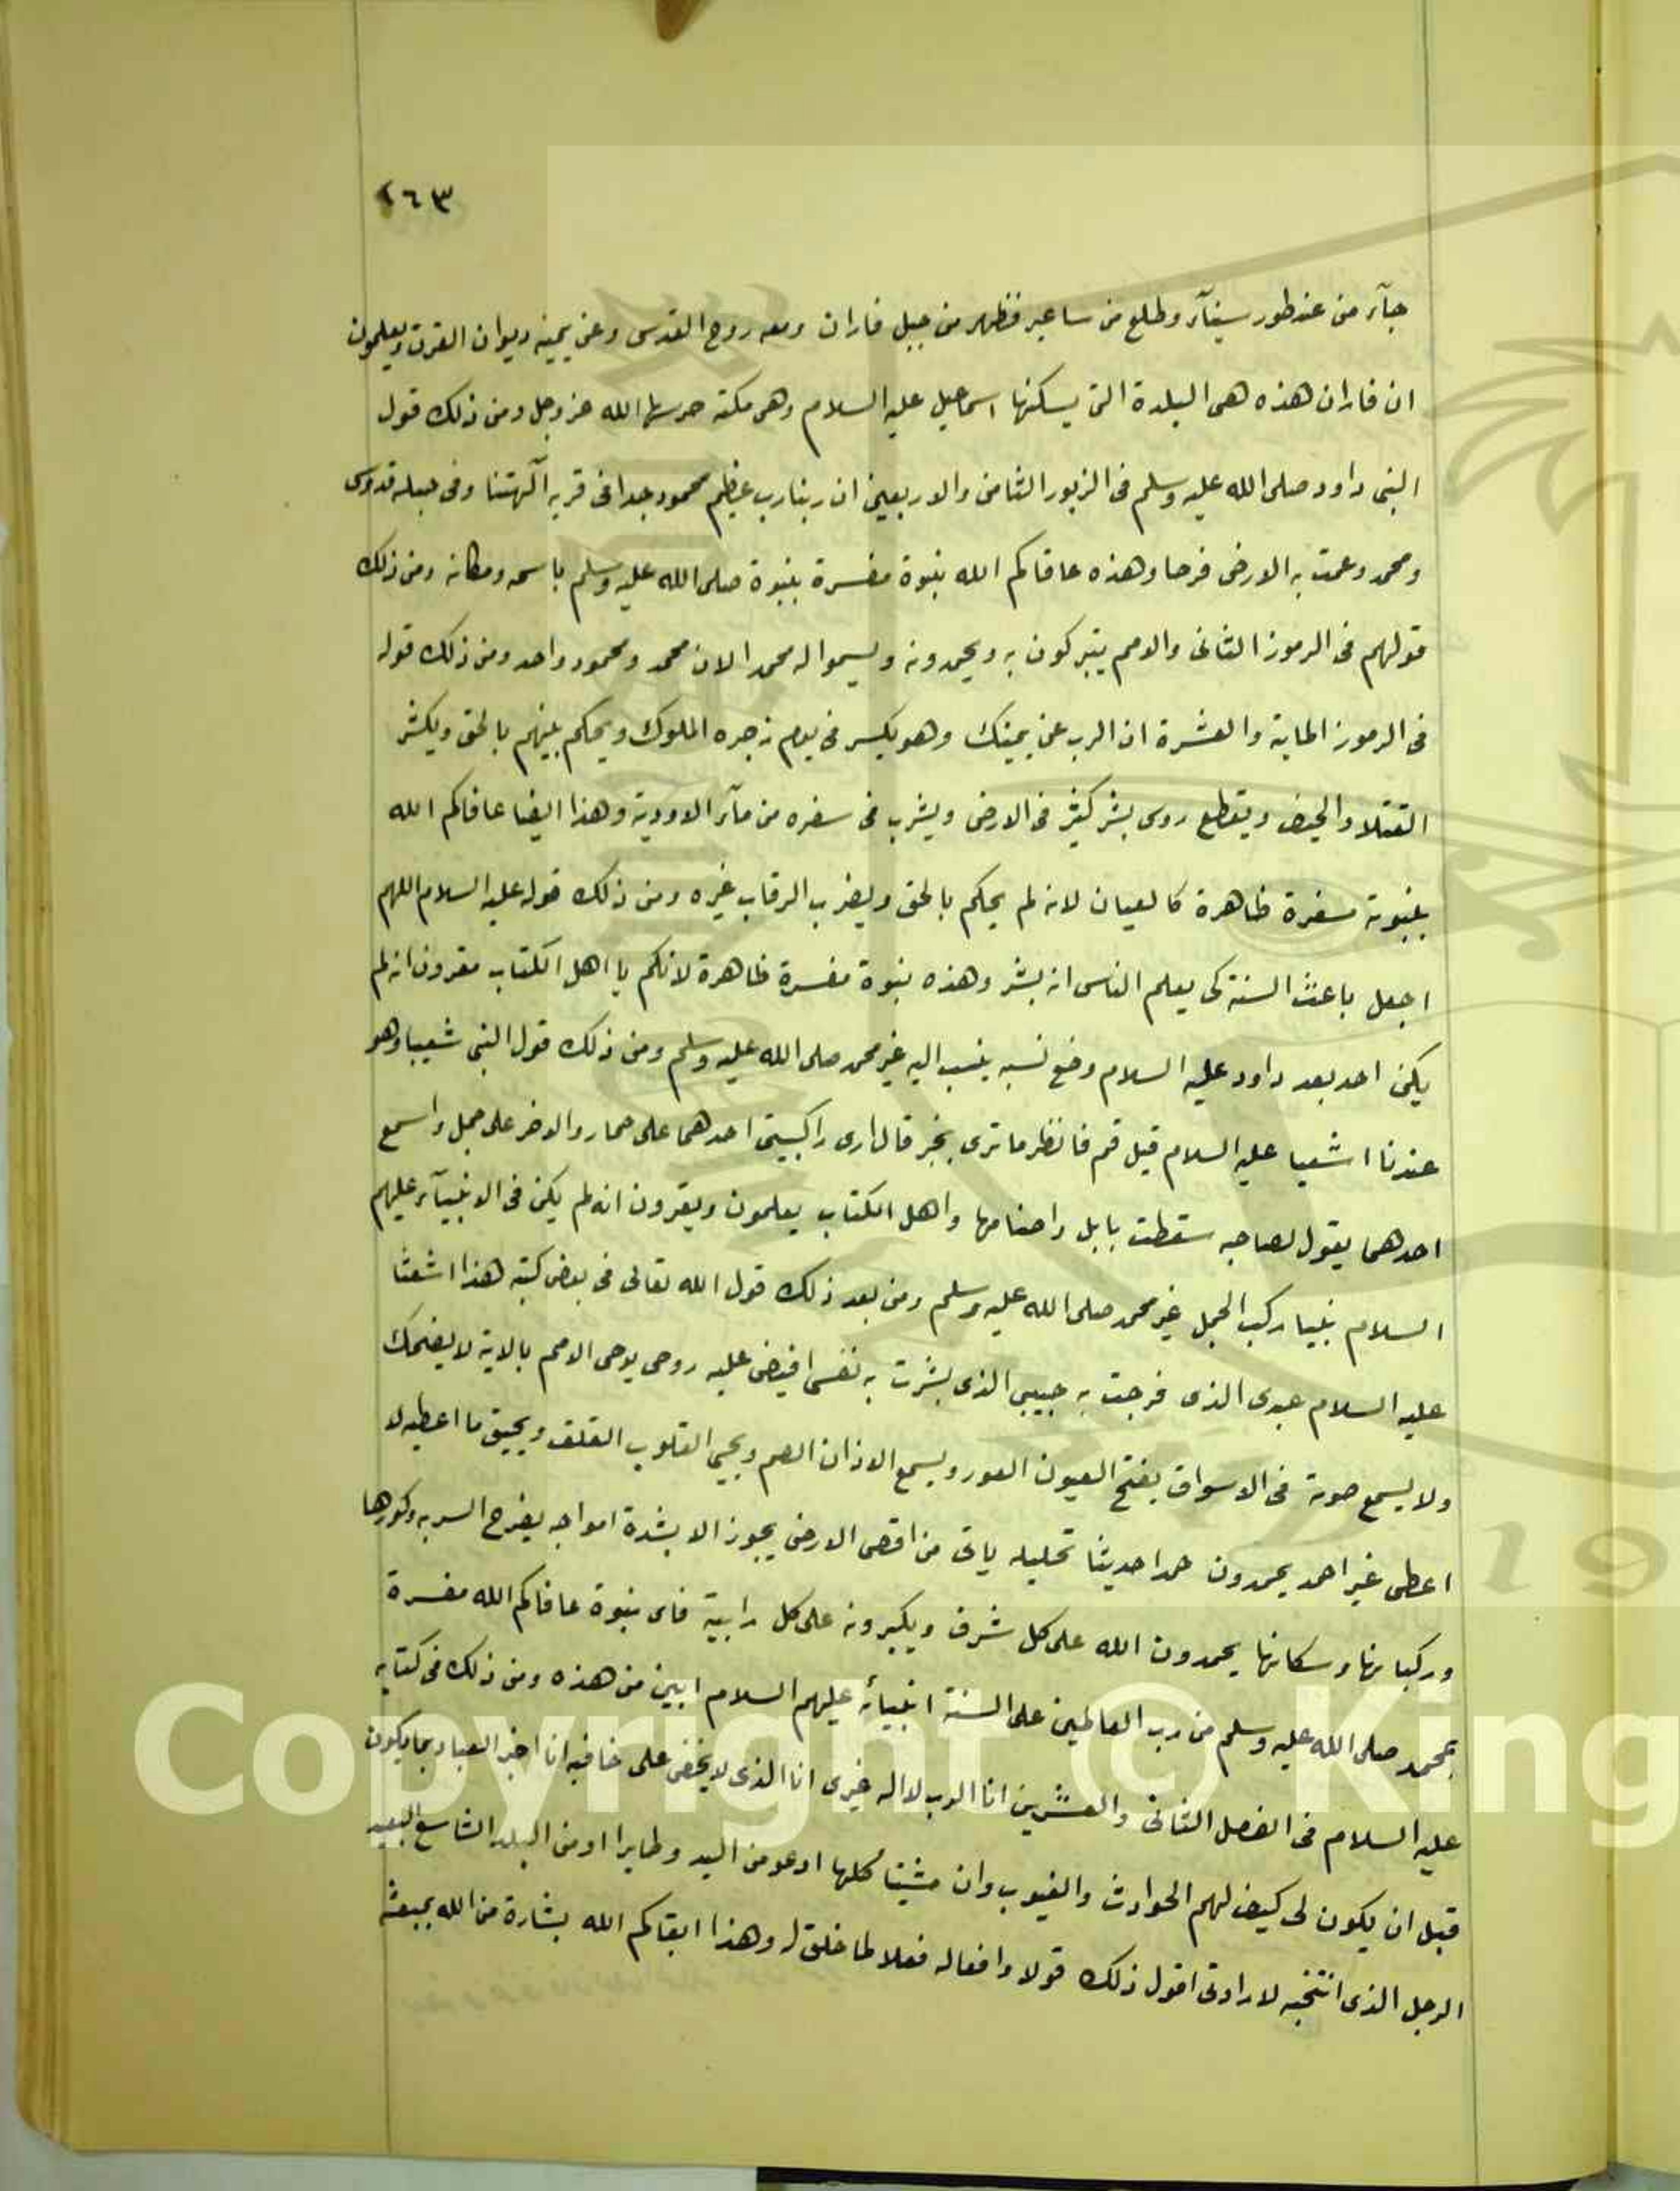 ٢٦٣
جآء من عند طور سينآء وطلع من ساعير فظهر من جبل فاران ومعه روح القدس وعن يمينه ديوان القرن ويعلمون
ان فاران هذه هى البلدة التى يسكنها اسماعيل عليه السلام وهى مكة حرسها الله عز وجل ومن ذلك قول
النبى داود صلى الله عليه وسلم فى الزبور الثامن والاربعين ان ربنا رب عظيم محمود جدا فى قربه آلهتنا وفى جبله قدوس
ومحمد وعمت به الارض فرحا وهذه عافاكم الله نبوة مفسرة بنبوة صلى الله عليه وسلم باسمه ومكانه ومن ذلك
قولهم فى الرموز الثانى والامم يتبركون به ويحمدونه ويسموا له محمدا لان محمد ومحمود واحد ومن ذلك قوله
فى الرموز الماية والعشرة ان الرب عن يمينك وهو يكسر فى يوم زجره الملوك ويحكم بينهم بالحق ويكثر
القتلا والجيف ويقطع روس بشر كثير فى الارض ويشرب فى سفره من مآء الاودية وهذا ايضا عافاكم الله
بنبوته مسفرة ظاهرة كالعيان لانه لم يحكم بالحق ويضرب الرقاب غيره ومن ذلك قوله عليه السلام اللهم
اجعل باعث السنة كى يعلم الناس انه بشر وهذه نبوة مفسرة ظاهرة لانكم يا اهل الكتاب مقرون انه لم
يكن احد بعد داود عليه السلام وضع نسبه ينسب اليه غير محمد صلى الله عليه وسلم ومن ذلك قول النبى شعيبا وهو
عندنا اشعيا عليه السلام قيل قم فانظر ما ترى بخبر قال ارى راكبين احدهما على حمار والاخر على جمل واسمع
احدهما يقول لصاحبه سقطت بابل واصنامها واهل الكتاب يعلمون ويقرون انه لم يكن فى الانبيآء عليهم
السلام نبيا ركب الجمل غير محمد صلى الله عليه وسلم ومن بعد ذلك قول الله تعالى فى بعض كتبه هذا اشعثا
عليه السلام عبدى الذى فرجت به حبيبى الذى بشرت به نفسى افيض عليه روحى يوحى الامم بالاية لا يضحك
ولا يسمع صوته فى الاسواق يفتح العيون العور ويسمع الاذان الصم ويحيى القلوب الغلف ويحيق ما اعطيه لا
اعطى غير احمد يحمدون حمدا حديثا تحليله ياتى من اقصى الارض يجوز الا بشدة امواجه يفرح السربه وكورها
وركبانها وسكانها يحمدون الله على كل شرف ويكبرونه على كل رابية فاى نبوة عافاكم الله مفسرة
بمحمد صلى الله عليه وسلم من رب العالمين على السنة انبيائه عليهم السلام ابين من هذه ومن ذلك فى كتابه
عليه السلام فى الفصل الثانى والعشرين انا الرب لا اله غيرى انا الذى لا يخفى على خافيه انا اخبر العباد بما يكون
قبل ان يكون لى كيف لهم الحوادث والغيوب وان مشيتا كلها ادعو من اليد وطايرا او من البلد الشاسع البعيد
الرجل الذى انتخبه لارادتى اقول ذلك قولا وافعاله فعلا لما خلق له وهذا ابقاكم الله بشارة من الله بمبعثه
Copyright © King
19